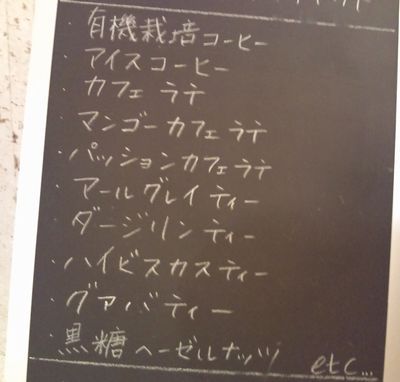 ・有機栽培コーヒー
・アイスコーヒー
・カフェラテ
・マンゴーカフェラテ
・パッションカフェラテ
・アールグレイティー
・ダージリンティー
・ハイビスカスティー
・グァバティー
・黒糖ヘーゼルナッツ etc...